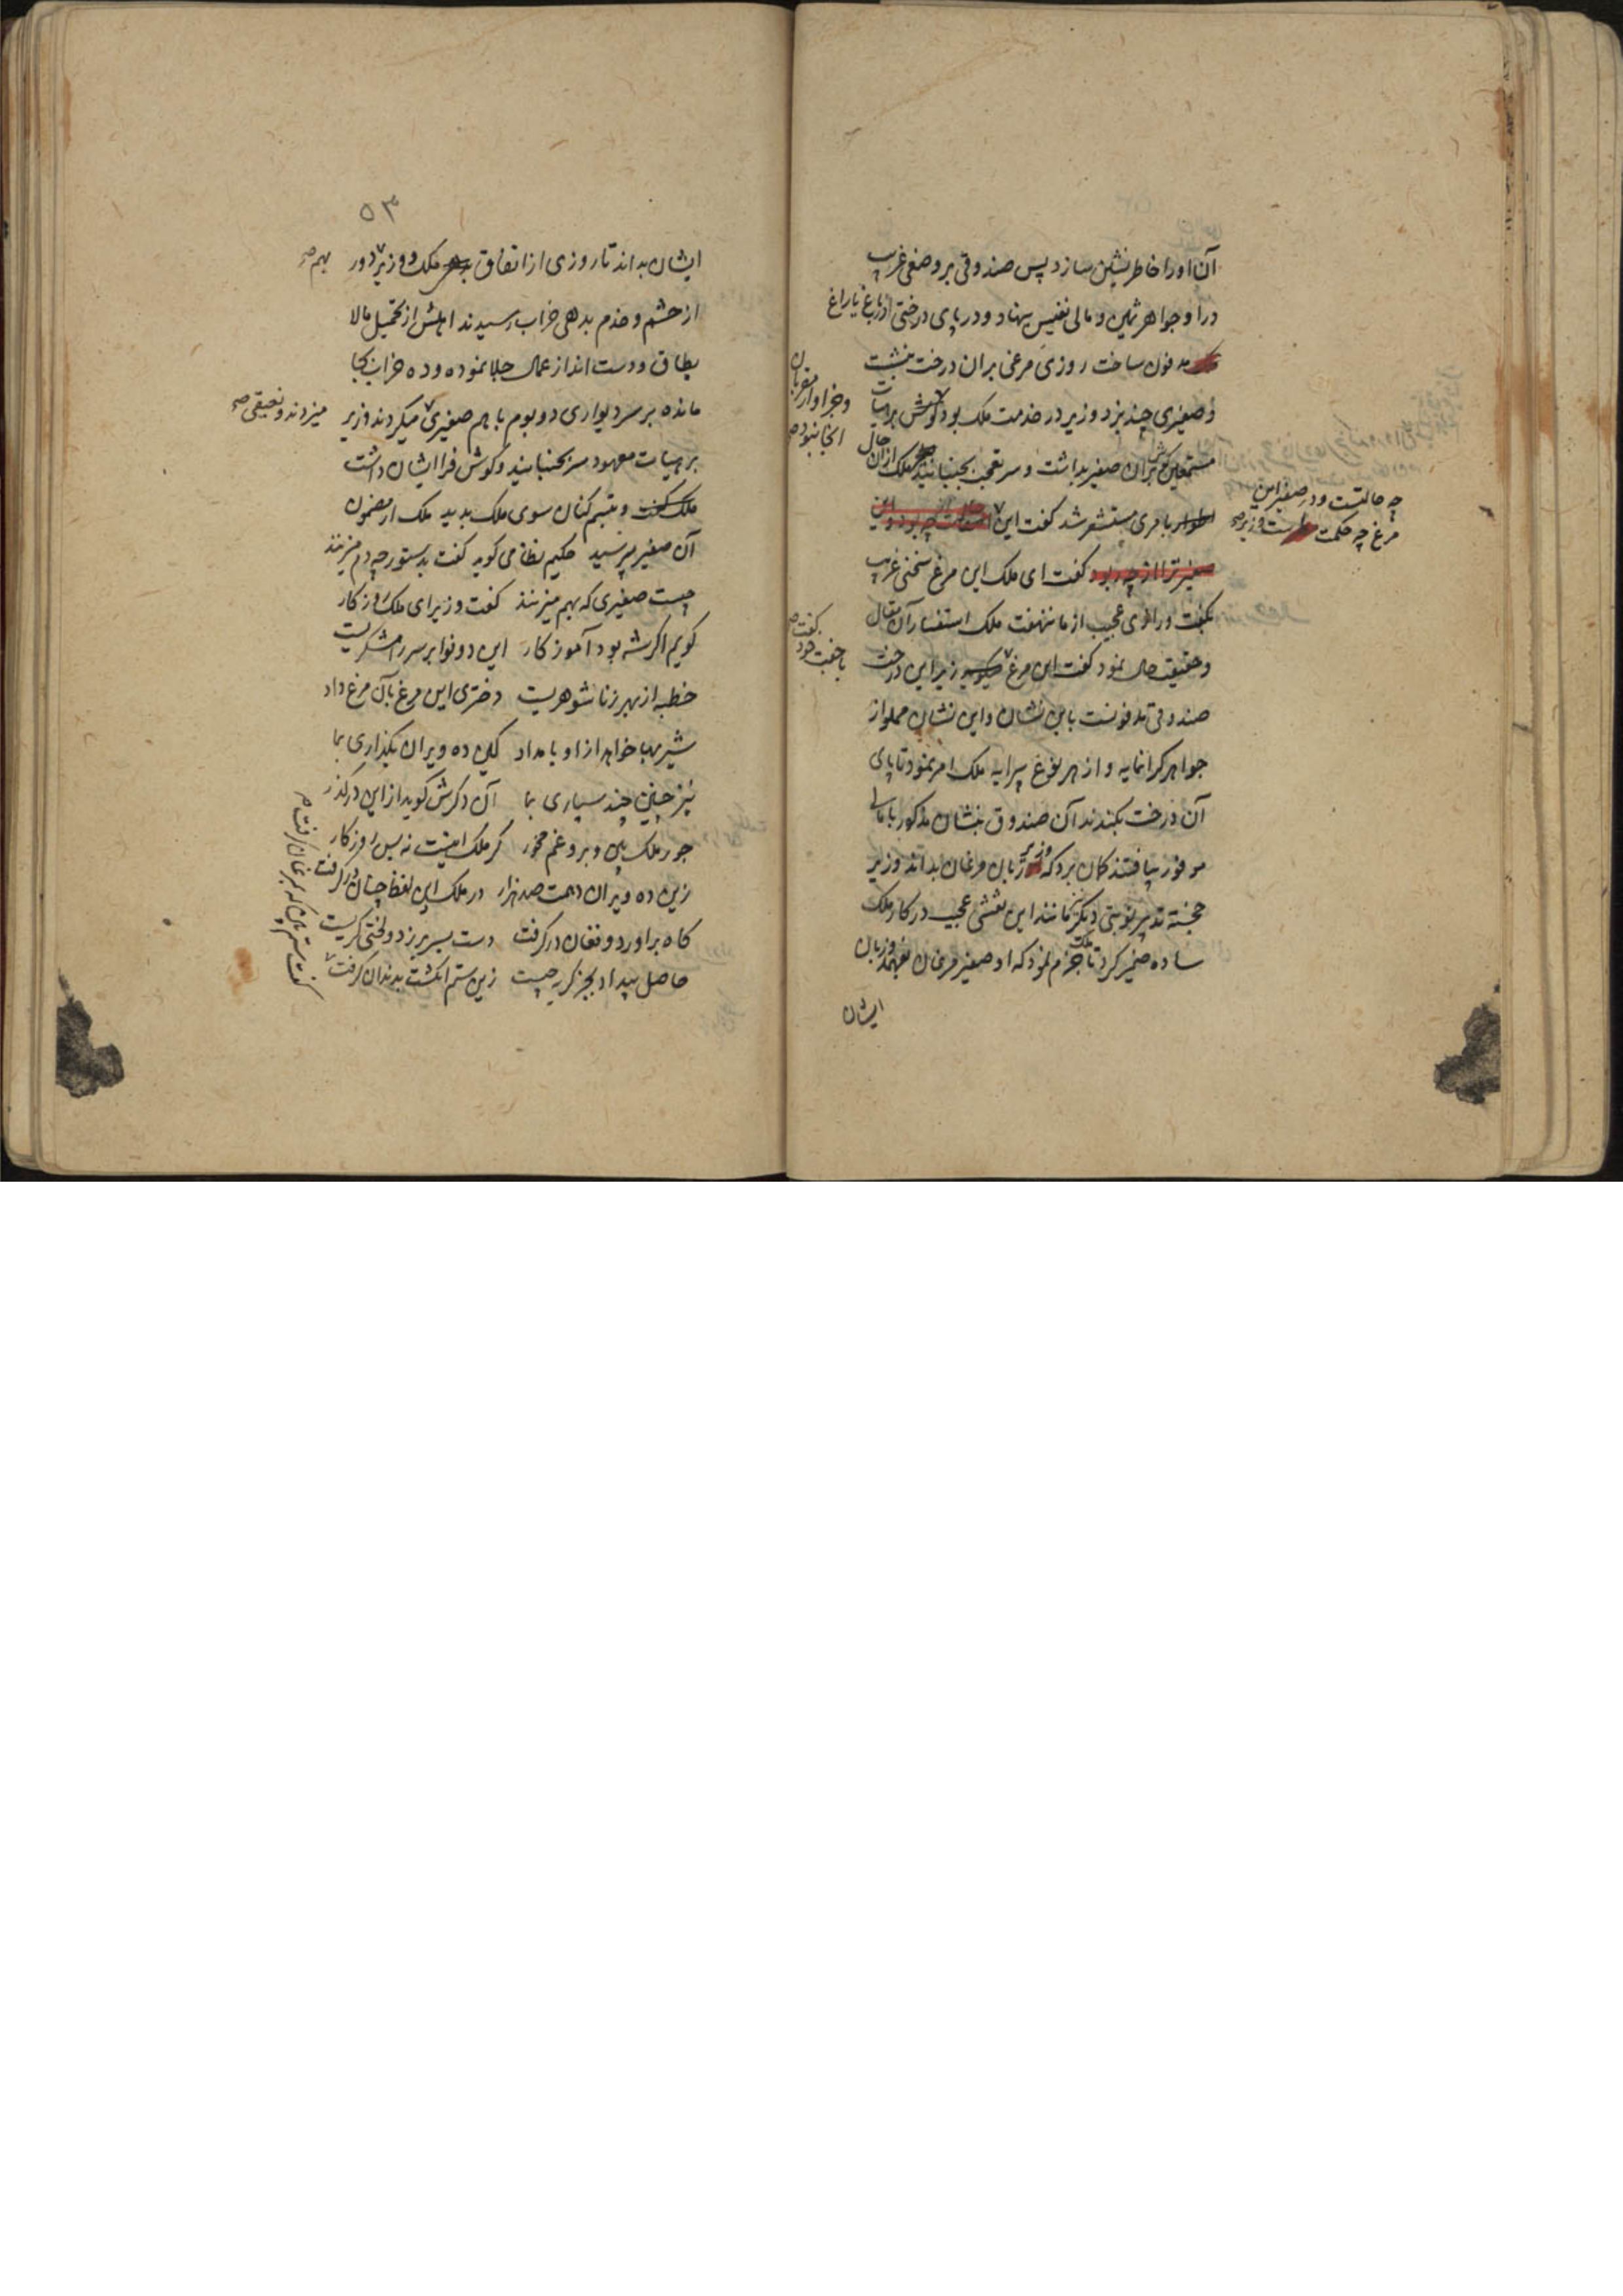 آن او را خاطر نشین سازد پس صندوقی بر وضعی غریب
در او جواهر ثمین و مالی نفیس بنهاد و در پای درختی از باغ یا راغ
مدفون ساخت روزی مرغی بران درخت بنشست
و صفیری چند بزد وزیر در خدمت ملک بود گوش بر هیأت
وجز او از مقربان
آنجا نبود صح
مستمعین بران صفیر بداشت و سر تعجب بجنبانید ملک از آن حال
بامری مستشعر شد گفت این
چه حالتست و در صفیر این
مرغ چه حکمت است وزیر صح
گفت ای ملک این مرغ سخنی غریب
بگفت و رازی عجیب از ما ننهفت ملک استفسار آن مقال
و حقیقت حال نمود گفت این مرغ زیر این درخت
گفت
با جفت خود
صندوقی مدفونست باین نشان و این نشان مملو از
جواهر گرانمایه و از هر نوع پیرایه ملک امر نمود تا پای
آن درخت بکندند آن صندوق بنشان مذکور با مالی
موفور بیافتند گمان برد که وزیر زبان مرغان بداند وزیر
خجسته تدبیر نوبتی دیگر مانند این نقشی عجیب در کار ملک
ساده ضمیر کرد تا ملک جزم نمود که او صفیر مرغان بفهمد و زبان
ایشان
۵۳
ایشان بداند تا روزی از اتفاق ملک و وزیر دور
بهم صح
از حشم و خدم بدهی خراب رسیدند اهلش از تحمیل مالا
یطاق و دست انداز عمال جلا نموده و ده خراب بجا
مانده بر سر دیواری دو بوم با هم صفیری میکردند وزیر
میزدند و نعیقی صح
بر هیأت معهود سر بجنبانید و گوش فرا ایشان داشت
و تبسم کنان سوی ملک بدید ملک از مضمون
آن صفیر پرسید حکیم نظامی گوید گفت بدستور چه دم میزنند
چیست صفیری که بهم میزنند گفت وزیر ای ملک روزگار
گویم اگر شه بود آموزگار این دو نوا بر سر رامشگریست
خطبه از بهر زناشوهریست دختری این مرغ بآن مرغ داد
شیربها خواهد از او بامداد کاین ده ویران بگذاری بما
نیز چنین چند سپاری بما آن دگرش گوید از این درگذر
جور ملک بین و برو غم مخور گر ملک اینست نه بس روزگار
زین ده ویران دهمت صد هزار در ملک این لفظ چنان درگرفت
گاه براورد و فغان درگرفت دست بسر بر زد و لختی گریست
حاصل بیداد بجز گریه چیست زین ستم انگشت بدندان گرفت
گفت ستم بین که بمرغان گرفت